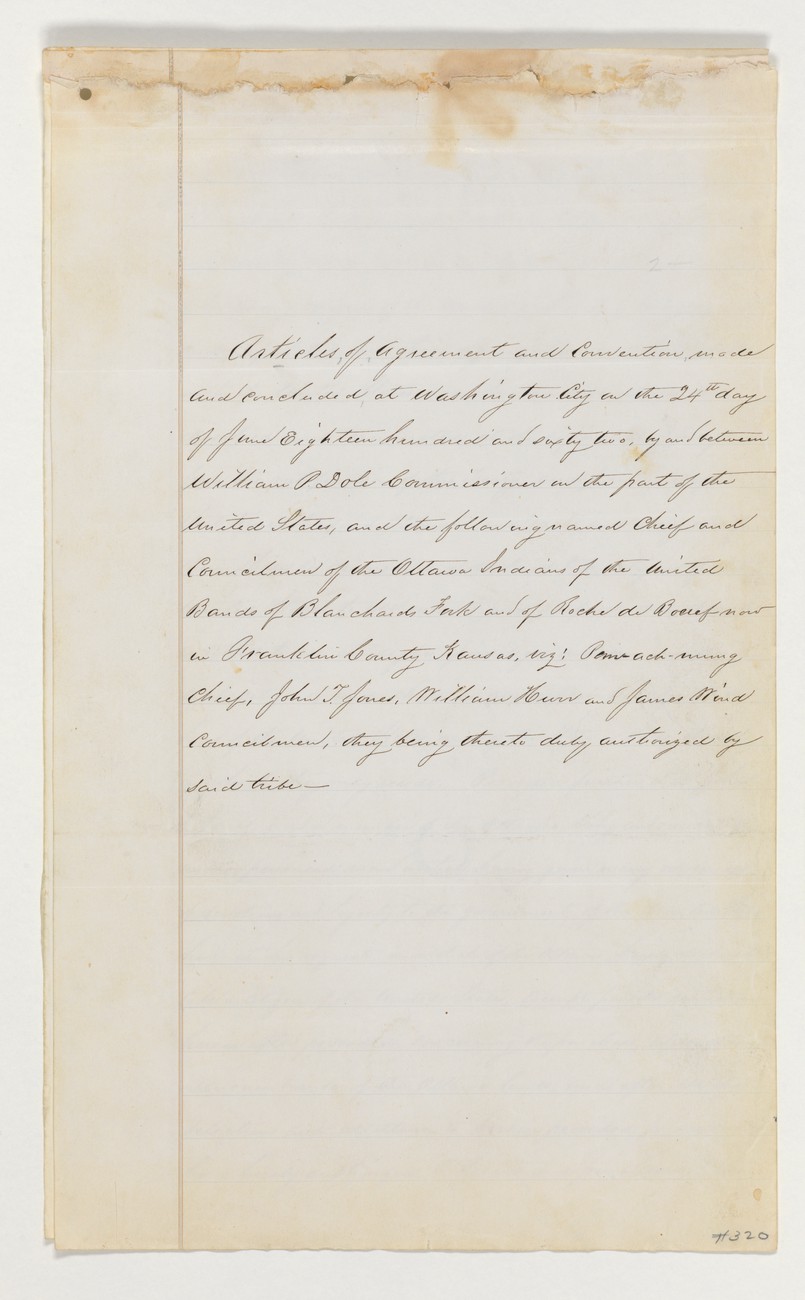 2 —
Articles of Agreement and Convention, made
and concluded at Washington City on the 24th day
of June Eighteen hundred and sixty two, by and between
William P. Dole Commissioner on the part of the
United States, and the following named Chief and
Councilmen of the Ottawa Indians of the United
Bands of Blanchards Fork and of Roche de Boeuf now
in Franklin County Kansas, viz: Pem-ach-wung
Chief, John T. Jones, William Hurr and James Wind
Councilmen, they being thereto duly authorized by
said tribe —
#320